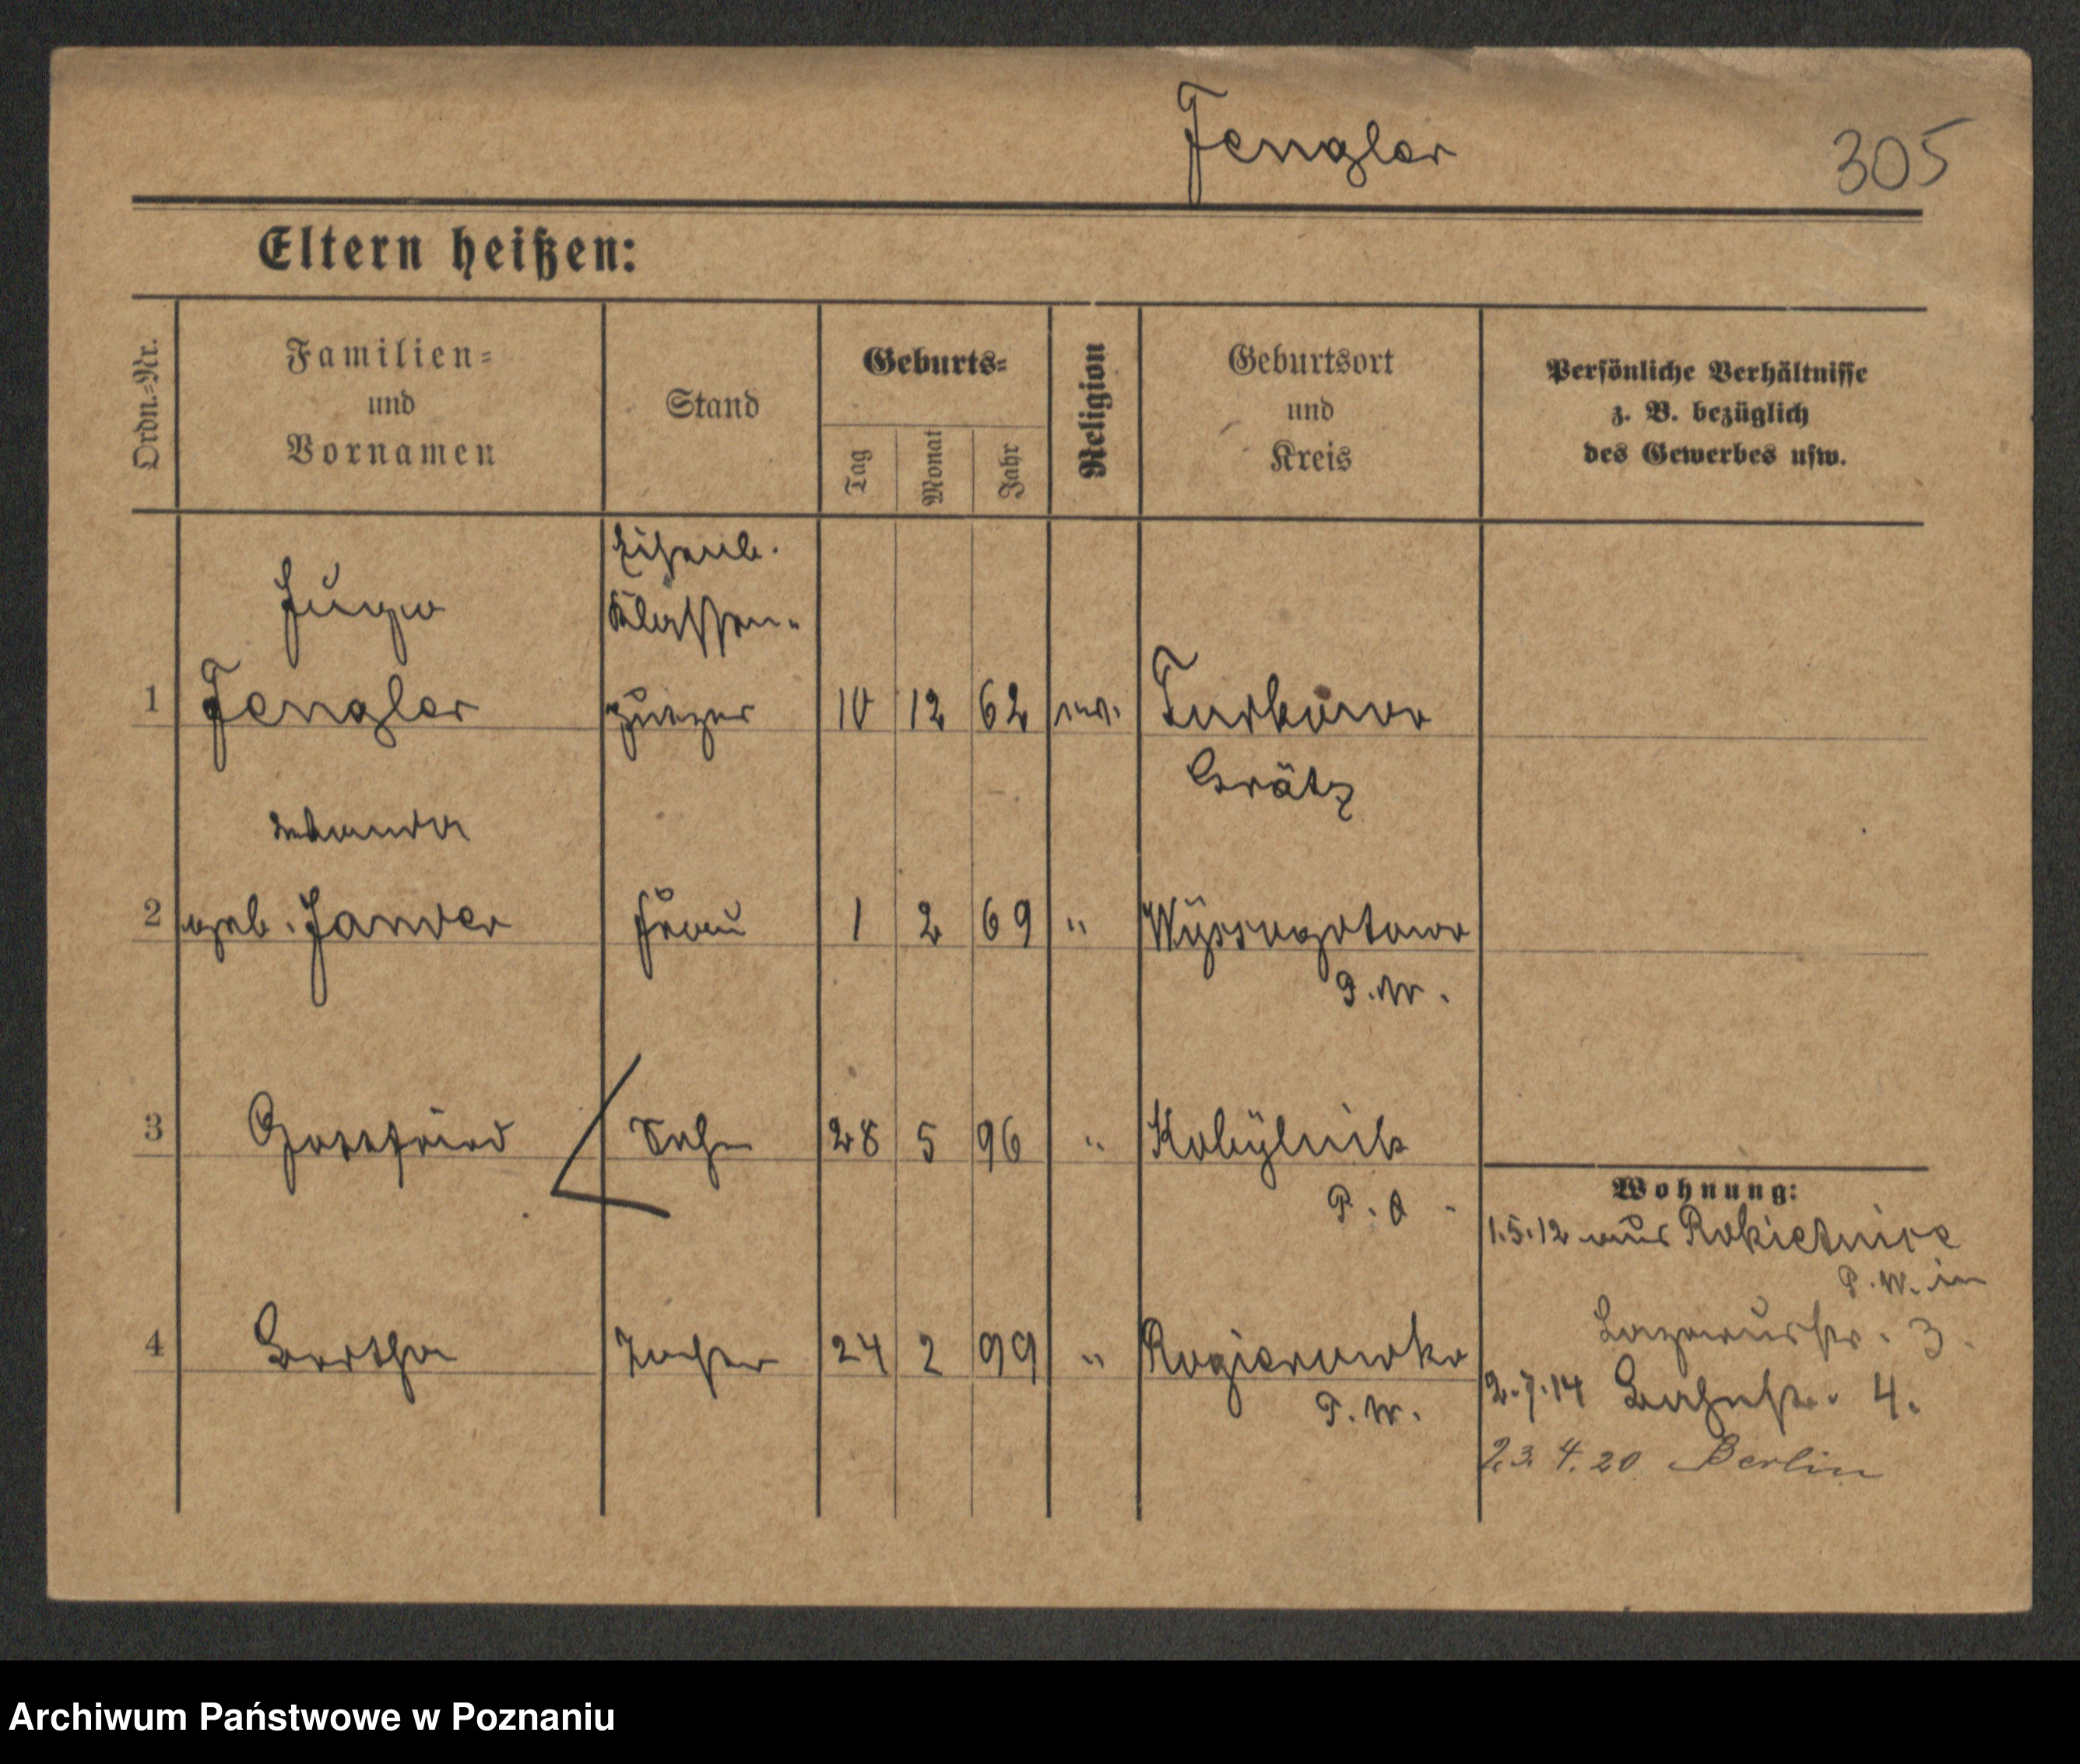 Fengler
305
Eltern heißen:
Ordn.=Nr.
Familien=
und
Vornamen
Stand
Geburts=
Tag
Monat
Jahr
Religion
Geburtsort
und
Kreis
Persönliche Verhältnisse
z. B. bezüglich
des Gewerbes usw.
Hugo
Eisenb.
1 Fengler 10 12 62 Turkowo
Grätz
2 geb. Jander Frau 1 2 69 " Wyssogotowo
P. W.
3 Gottfried Sohn 28 5 96 " Kobylnik
P. O.
4 Bertha Tochter 24 2 99 " Rogierowko
P. W.
Wohnung:
1.5.12 aus Rokietnice
P. W. in
Lazarusstr. 3.
2.7.14 Bahnstr. 4.
23.4.20 Berlin
Archiwum Państwowe w Poznaniu